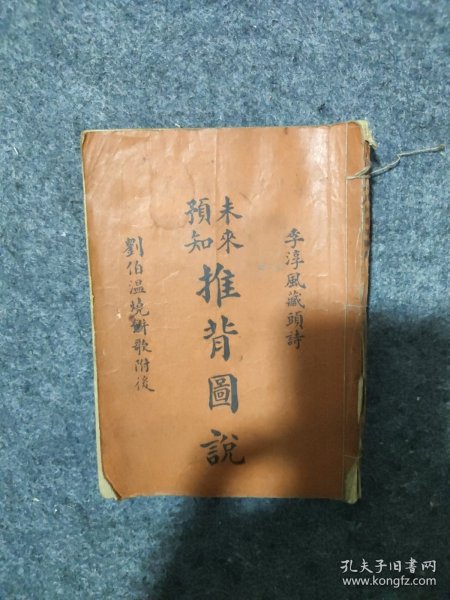 李淳風藏頭詩
未來
預知
推背圖說
劉伯温燒餅歌附後
孔夫子旧书网
www.kongfz.com